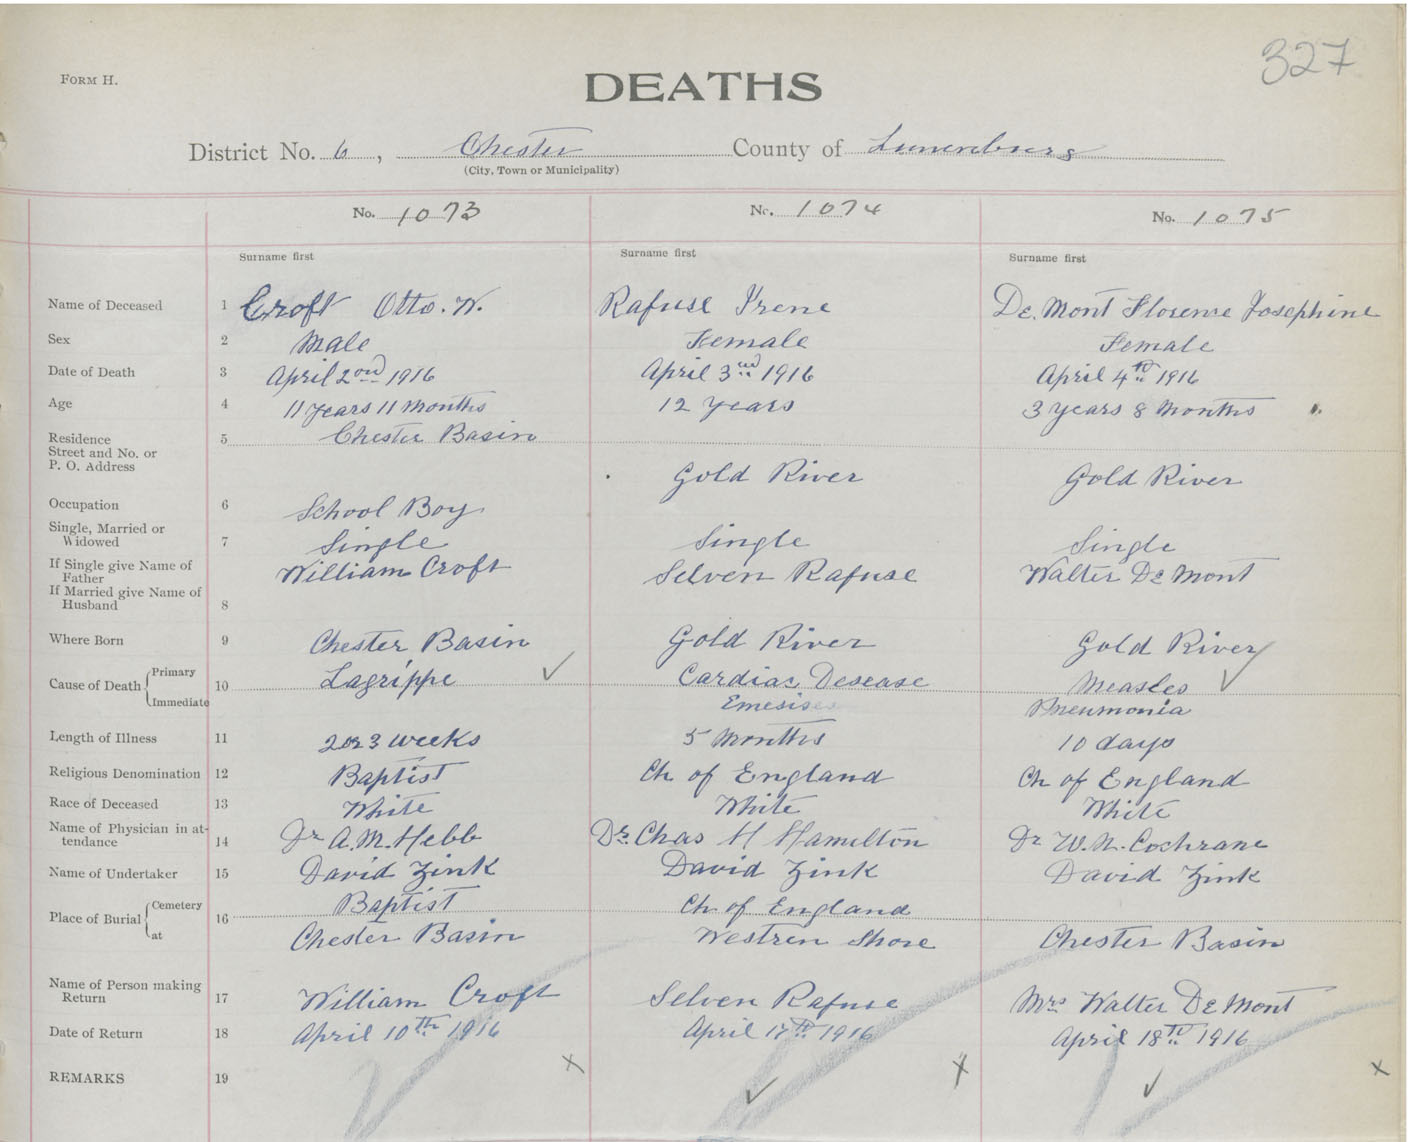 327
FORM H.
DEATHS
District No. 6, Chester County of Lunenburg
(City, Town or Municipality)
No. 1073 No. 1074 No. 1075
Surname first Surname first Surname first
Name of Deceased 1 Croft Otto. W. Rafuse Irene De. Mont Florence Josephine
Sex 2 Male Female Female
Date of Death 3 April 2nd 1916 April 3rd 1916 April 4th 1916
Age 4 11 years 11 months 12 years 3 years 8 months
Residence 5 Chester Basin
Street and No. or
P. O. Address Gold River Gold River
Occupation 6 School Boy
Single, Married or
Widowed 7 Single Single Single
If Single give Name of
Father William Croft Selven Rafuse Walter De Mont
If Married give Name of
Husband 8
Where Born 9 Chester Basin Gold River Gold River
Cause of Death Primary 10 Lagrippe Cardiac Desease Measles
Immediate Emesis Pneumonia
Length of Illness 11 2 or 3 weeks 5 months 10 days
Religious Denomination 12 Baptist Ch of England Ch of England
Race of Deceased 13 White White White
Name of Physician in at-
tendance 14 Dr A. M. Hebb Dr. Chas H Hamilton Dr W. N. Cochrane
Name of Undertaker 15 David Zink David Zink David Zink
Place of Burial Cemetery 16 Baptist Ch of England
at Chester Basin Westren Shore Chester Basin
Name of Person making
Return 17 William Croft Selven Rafuse Mrs Walter De Mont
Date of Return 18 April 10th 1916 April 17th 1916 April 18th 1916
REMARKS 19